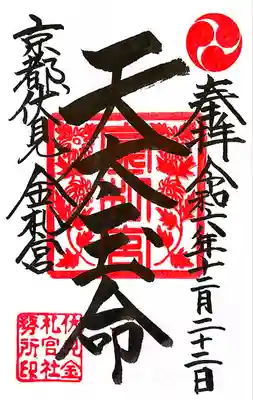 奉拝 令和六年十二月二十二日
天太玉命
京都伏見 金札宮
伏見金
札宮社
務所印